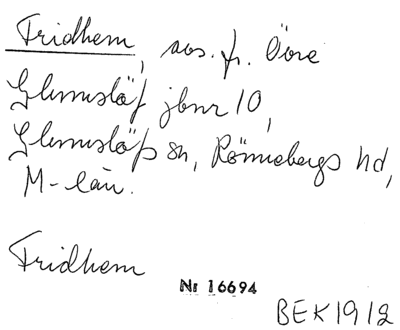 Fridhem, avs. fr. Övre
Glumslöf jbnr 10,
Glumslöfs sn, Rönnebergs hd,
M-län.
Fridhem
Nr 16694
BEK 1912